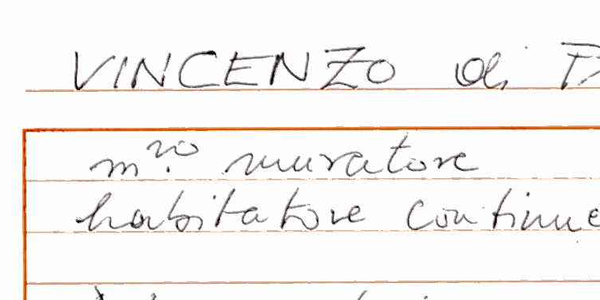 VINCENZO di
m.ro muratore
habitatore continue